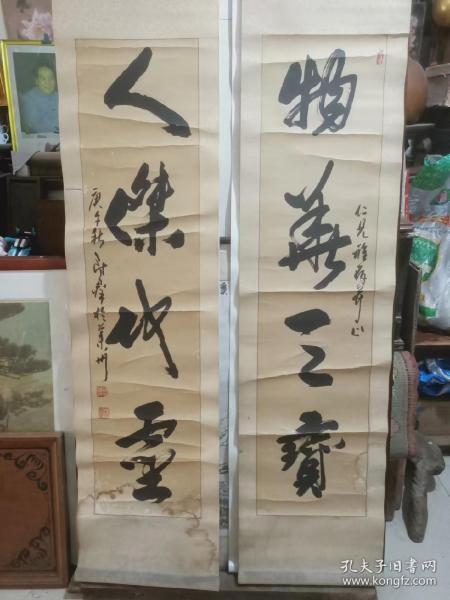 物華天寶
仁兄雅
正
人傑地靈
庚午秋
於蘭州
孔夫子旧书网
www.kongfz.com